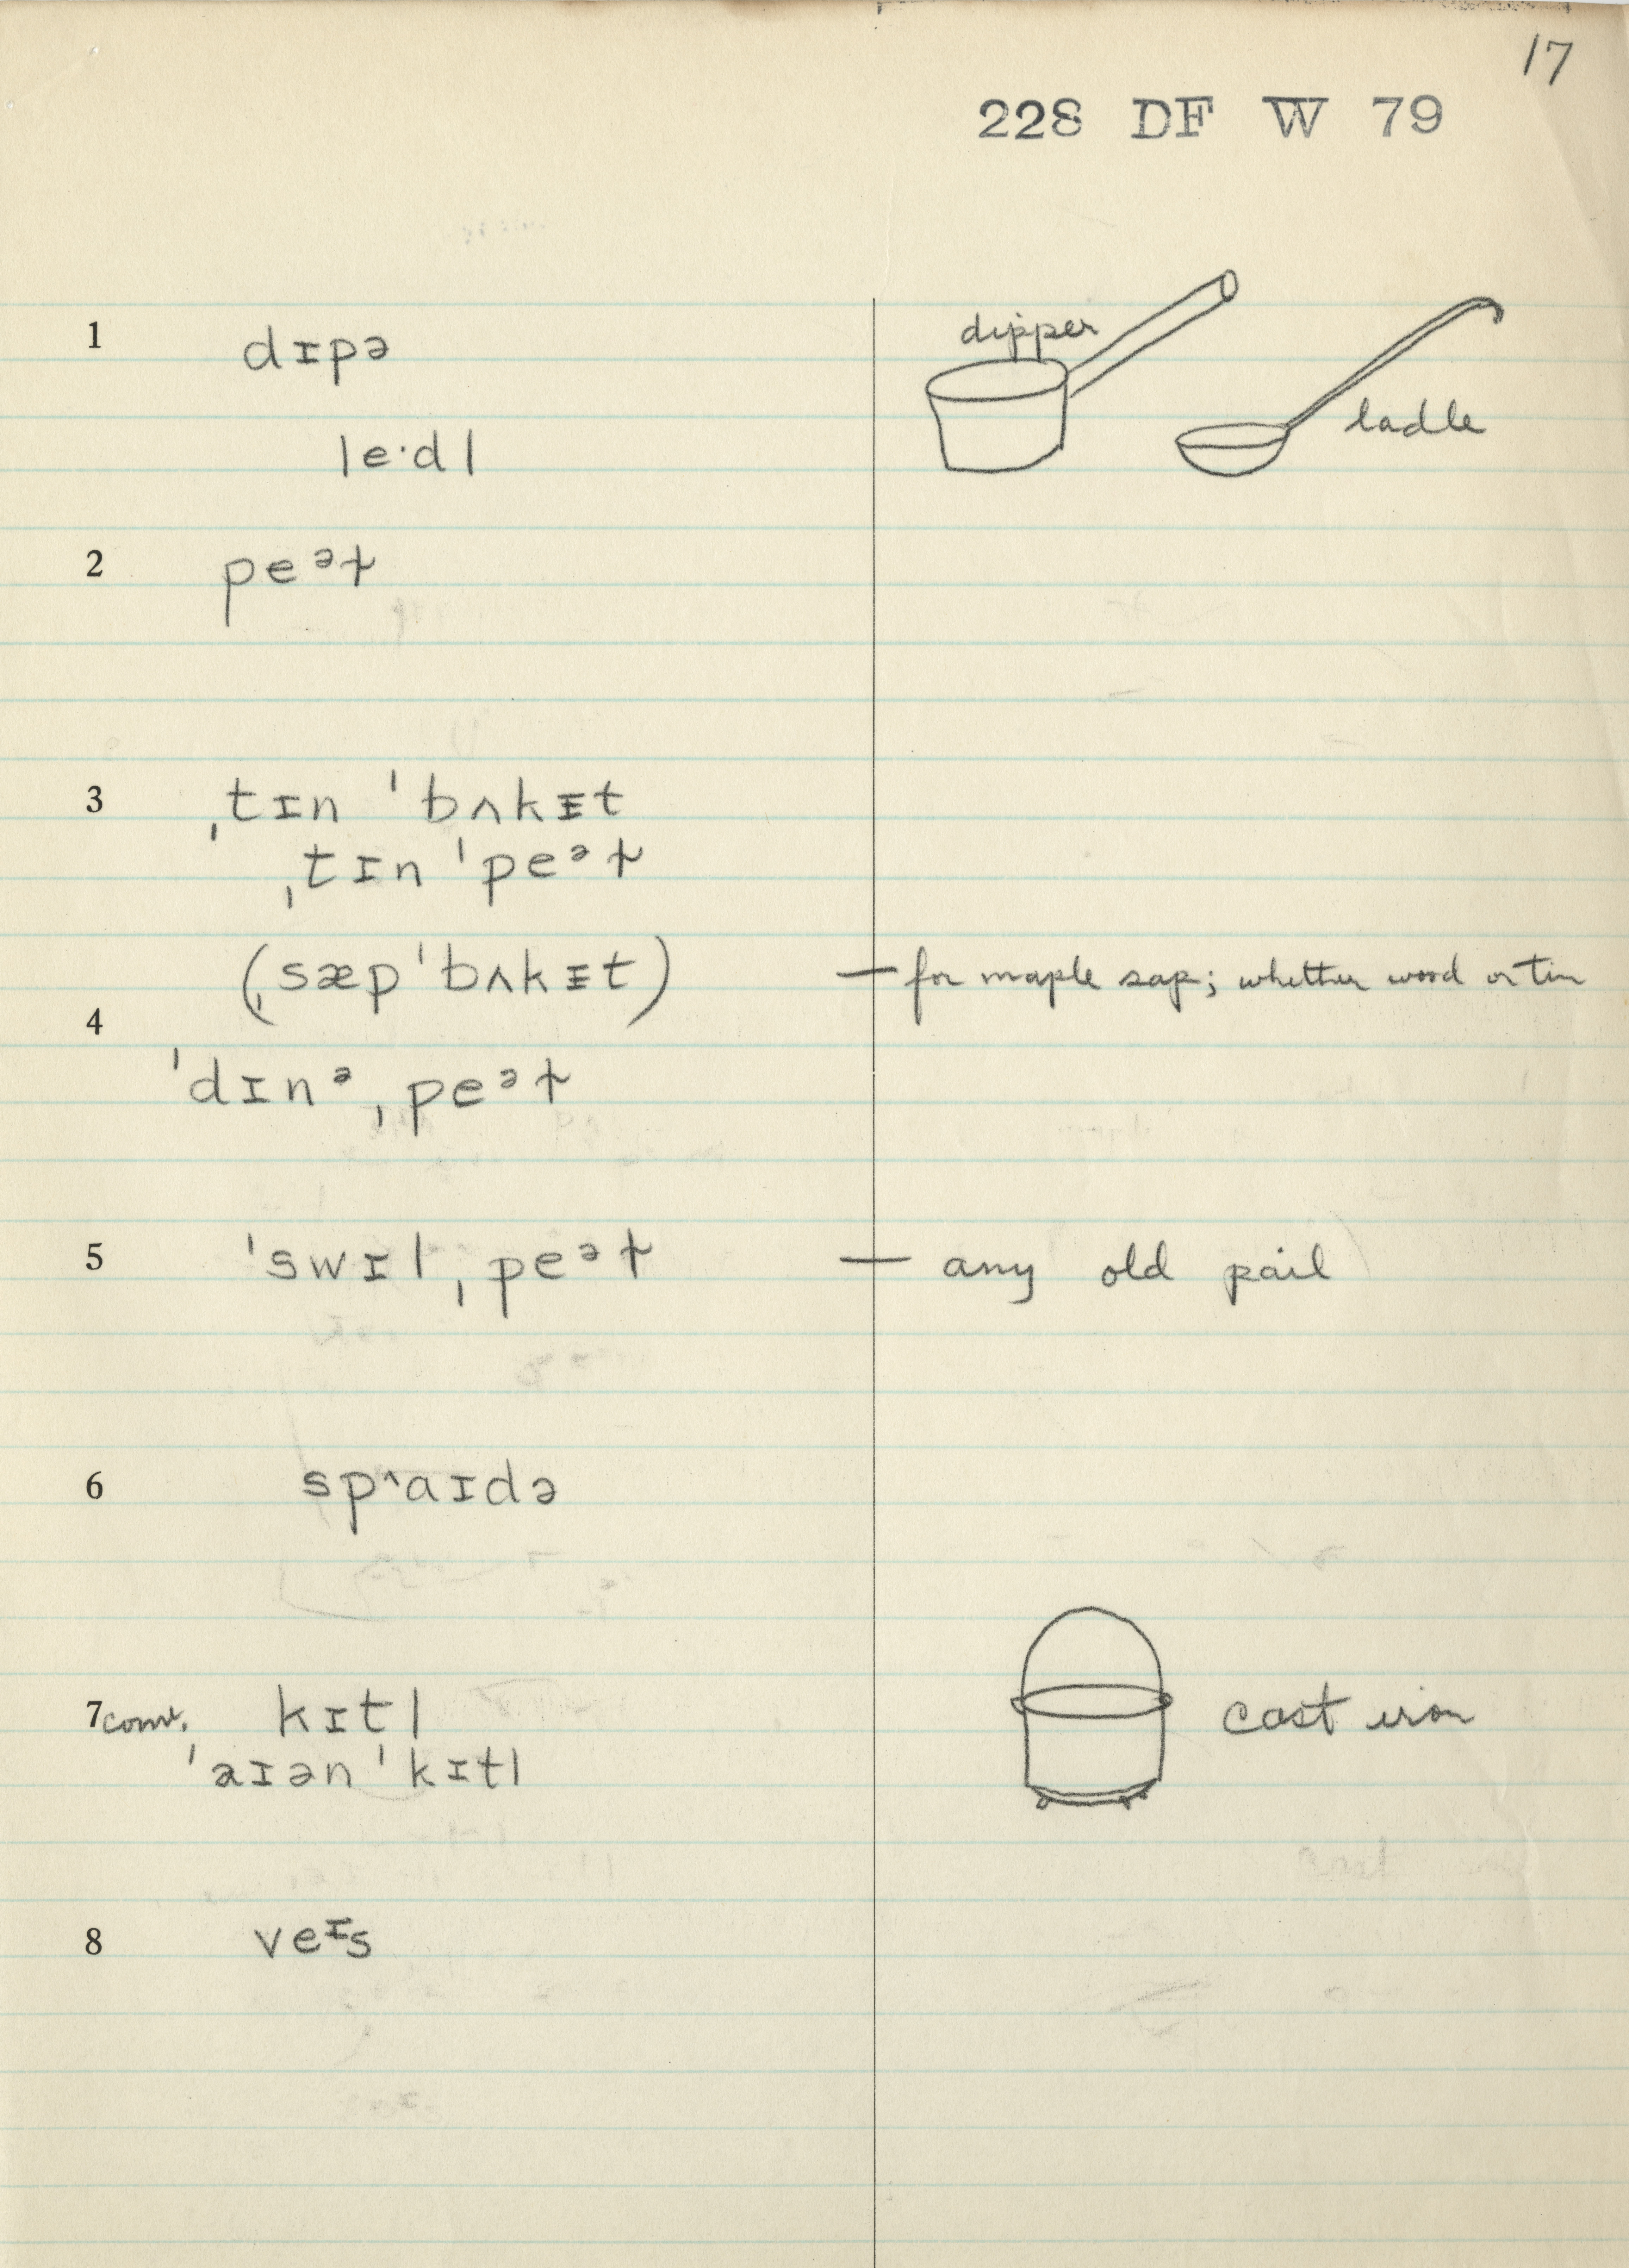 17
228 DF W 79
1 dɪpə dipper
le·dl ladle
2 peᵊɫ
3 ˌtɪn ˈbʌkᵻt
ˌtɪn ˈpeᵊɫ
(ˌsæpˈbʌkᵻt) — for maple sap; whether wood or tin
4
ˈdɪnᵊˌpeᵊɫ
5 ˈswɪlˌpeᵊɫ — any old pail
6 sp˄aɪdə
7 conv. kɪtl cast iron
ˈaɪən ˈkɪtl
8 veᶦs